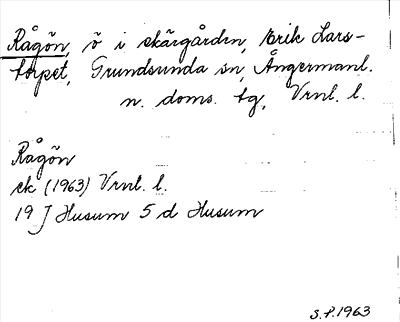 Rågön, ö i skärgården, Erik Lars-
torpet, Grundsunda sn, Ångermanl.
n. doms. tg, Vrnl. l.
Rågön
ek (1963) Vrnl. l.
19 J Husum 5 d Husum
S.P. 1963